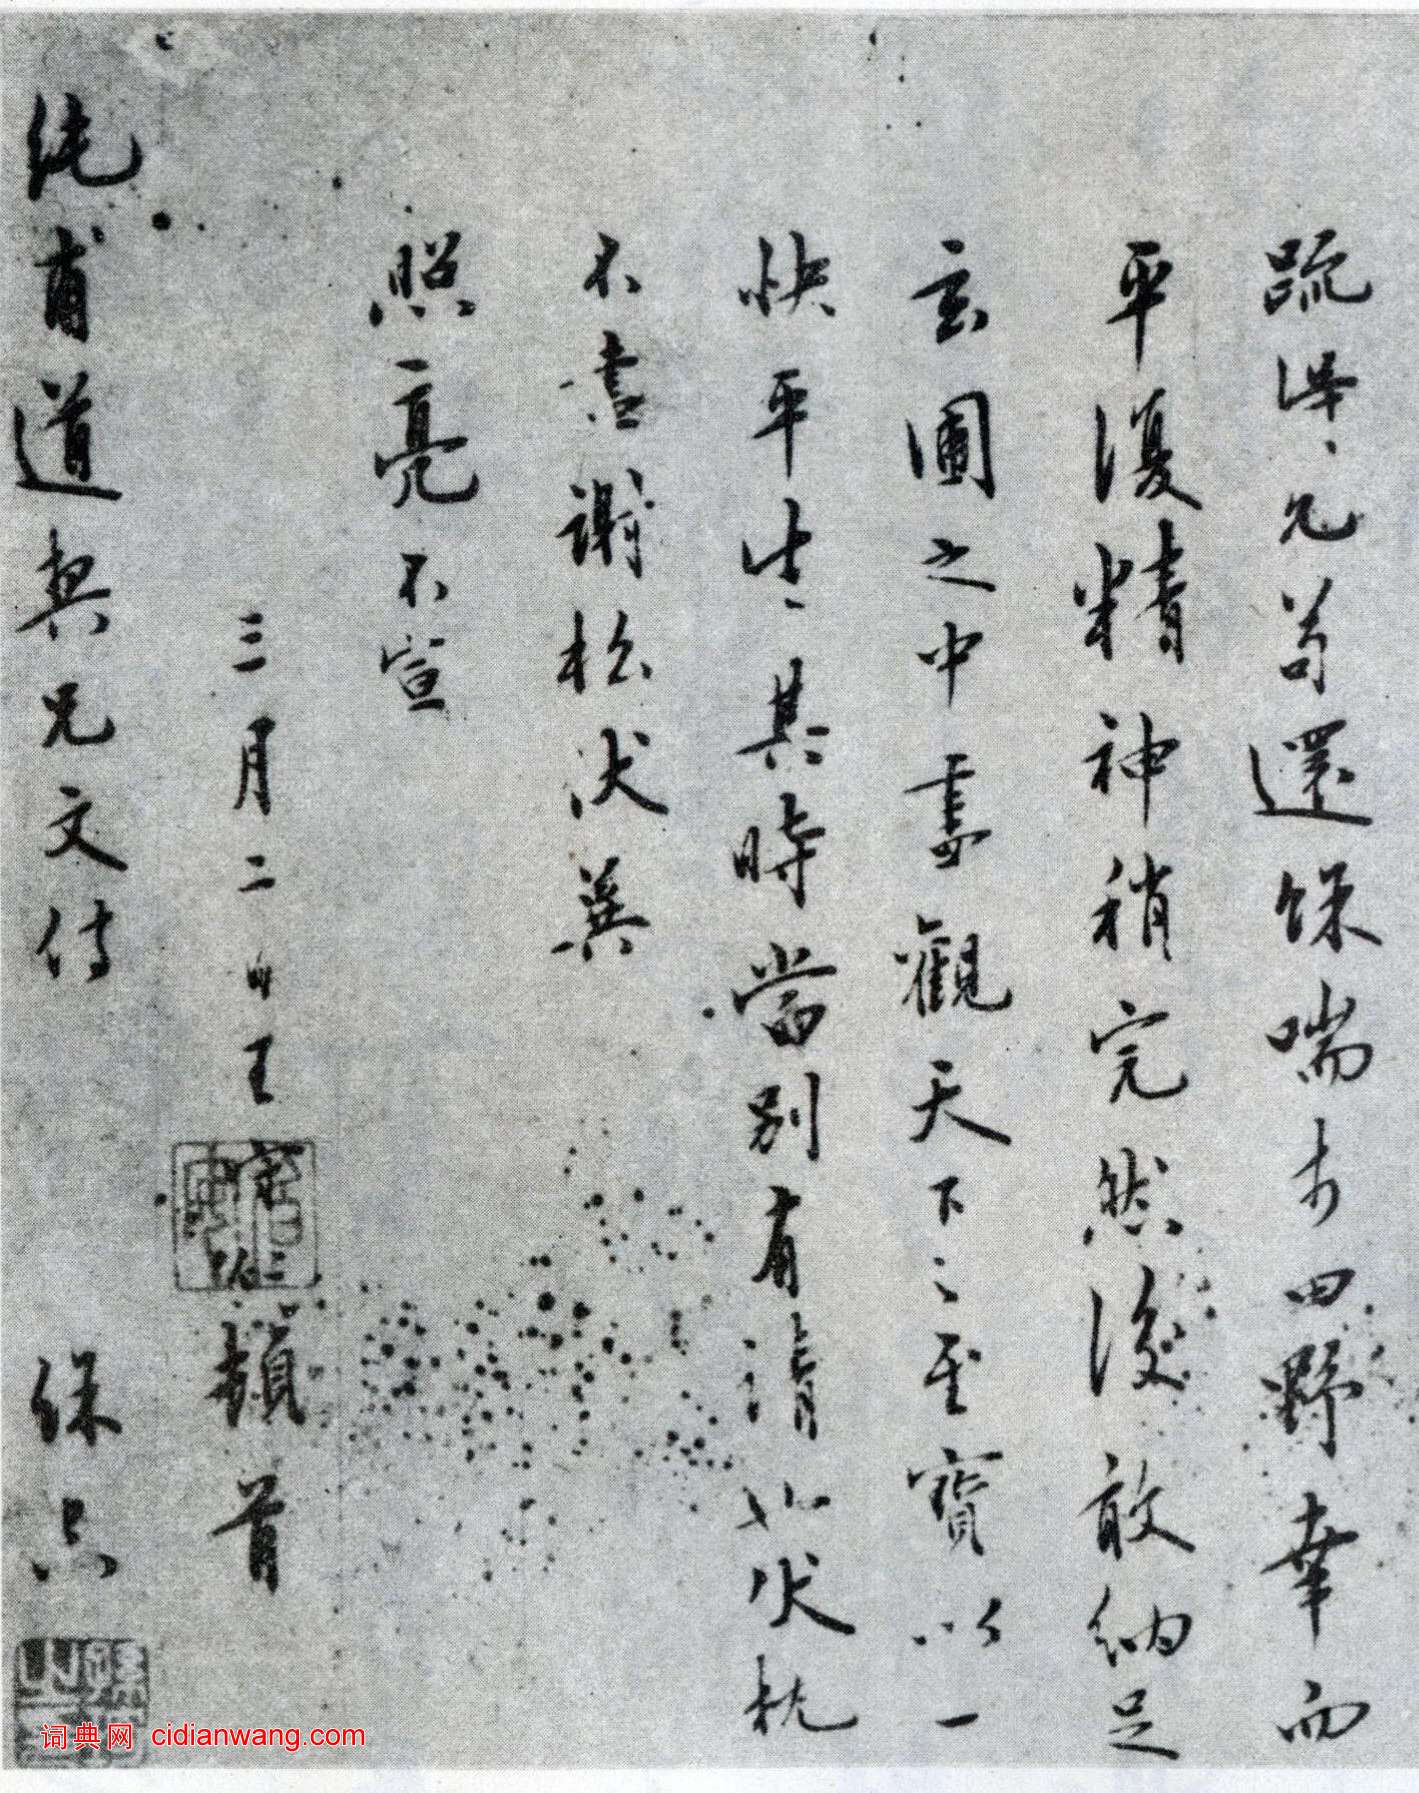 疏浮、兄苟還餘喘於田野幸而
平復精神稍完然後敢納足
玄圃之中盡觀天下之至寶以一
快平生、其時當別有請也伏枕
不盡謝私伏冀
照亮不宣
三月二日王寵頓首
純甫道契兄文侍
餘空
词典网 cidianwang.com